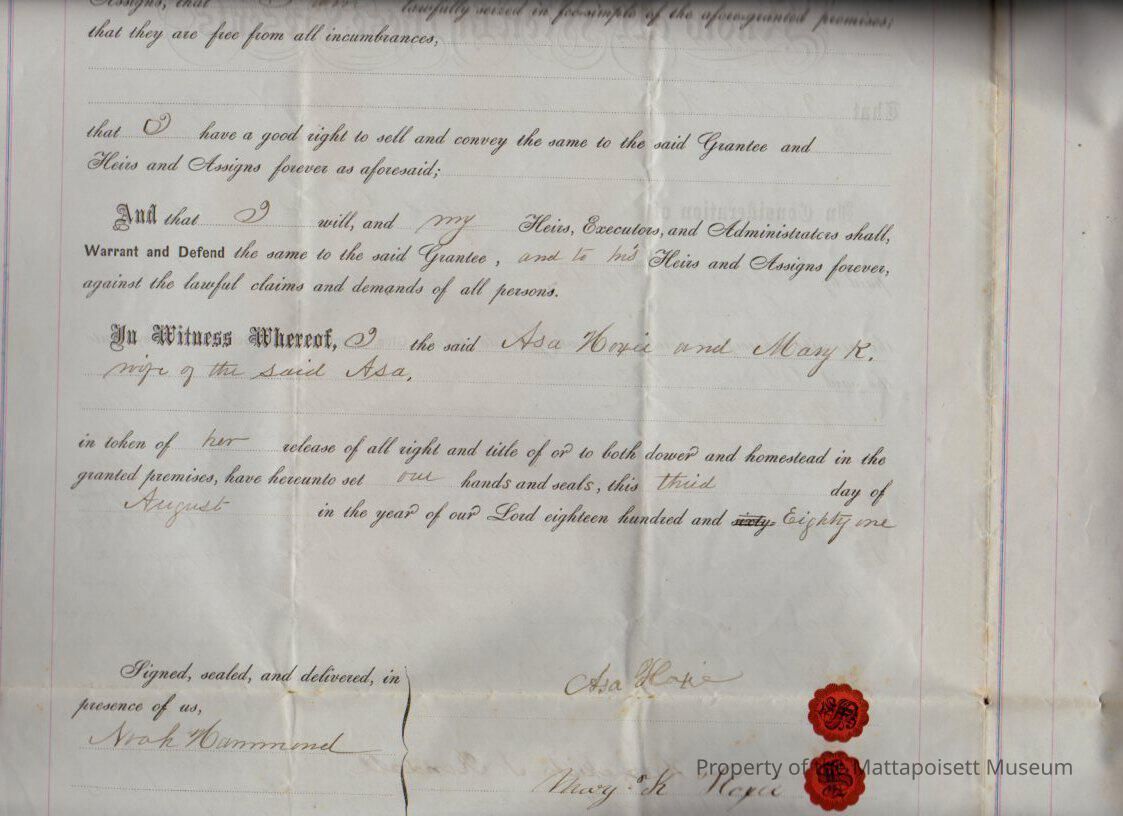 Assigns, that I am lawfully seized in fee-simple of the afore-granted premises;
that they are free from all incumbrances,
that I have a good right to sell and convey the same to the said Grantee and
Heirs and Assigns forever as aforesaid;
And that I will, and my Heirs, Executors, and Administrators shall,
Warrant and Defend the same to the said Grantee, and to his Heirs and Assigns forever,
against the lawful claims and demands of all persons.
In Witness Whereof, I the said Asa Hoxie and Mary K.
wife of the said Asa,
in token of her release of all right and title of or to both dower and homestead in the
granted premises, have hereunto set our hands and seals, this third day of
August in the year of our Lord eighteen hundred and sixty- Eighty one
Signed, sealed, and delivered, in
presence of us,
Noah Hammond
Asa Hoxie
Mary K Hoxie
Property of the Mattapoisett Museum